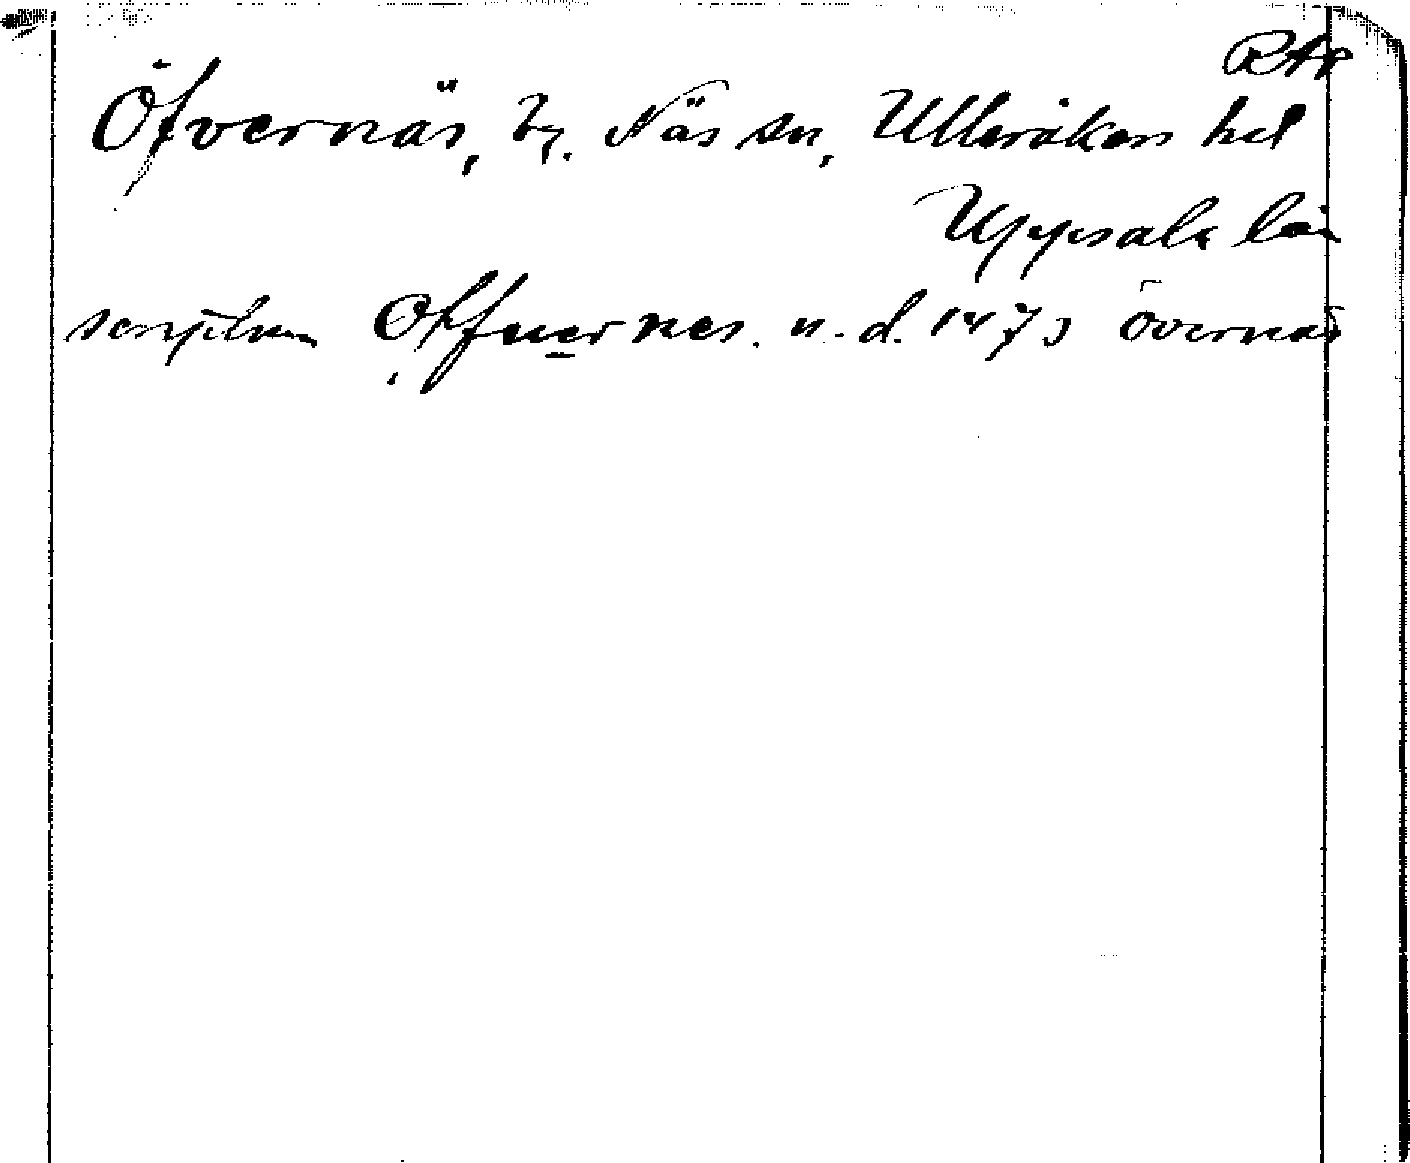 RAp
Öfvernäs, by. Näs sn, Ulleråkers hd
Uppsala län
scriptum Offuernes. u. d. 1473 övernäs